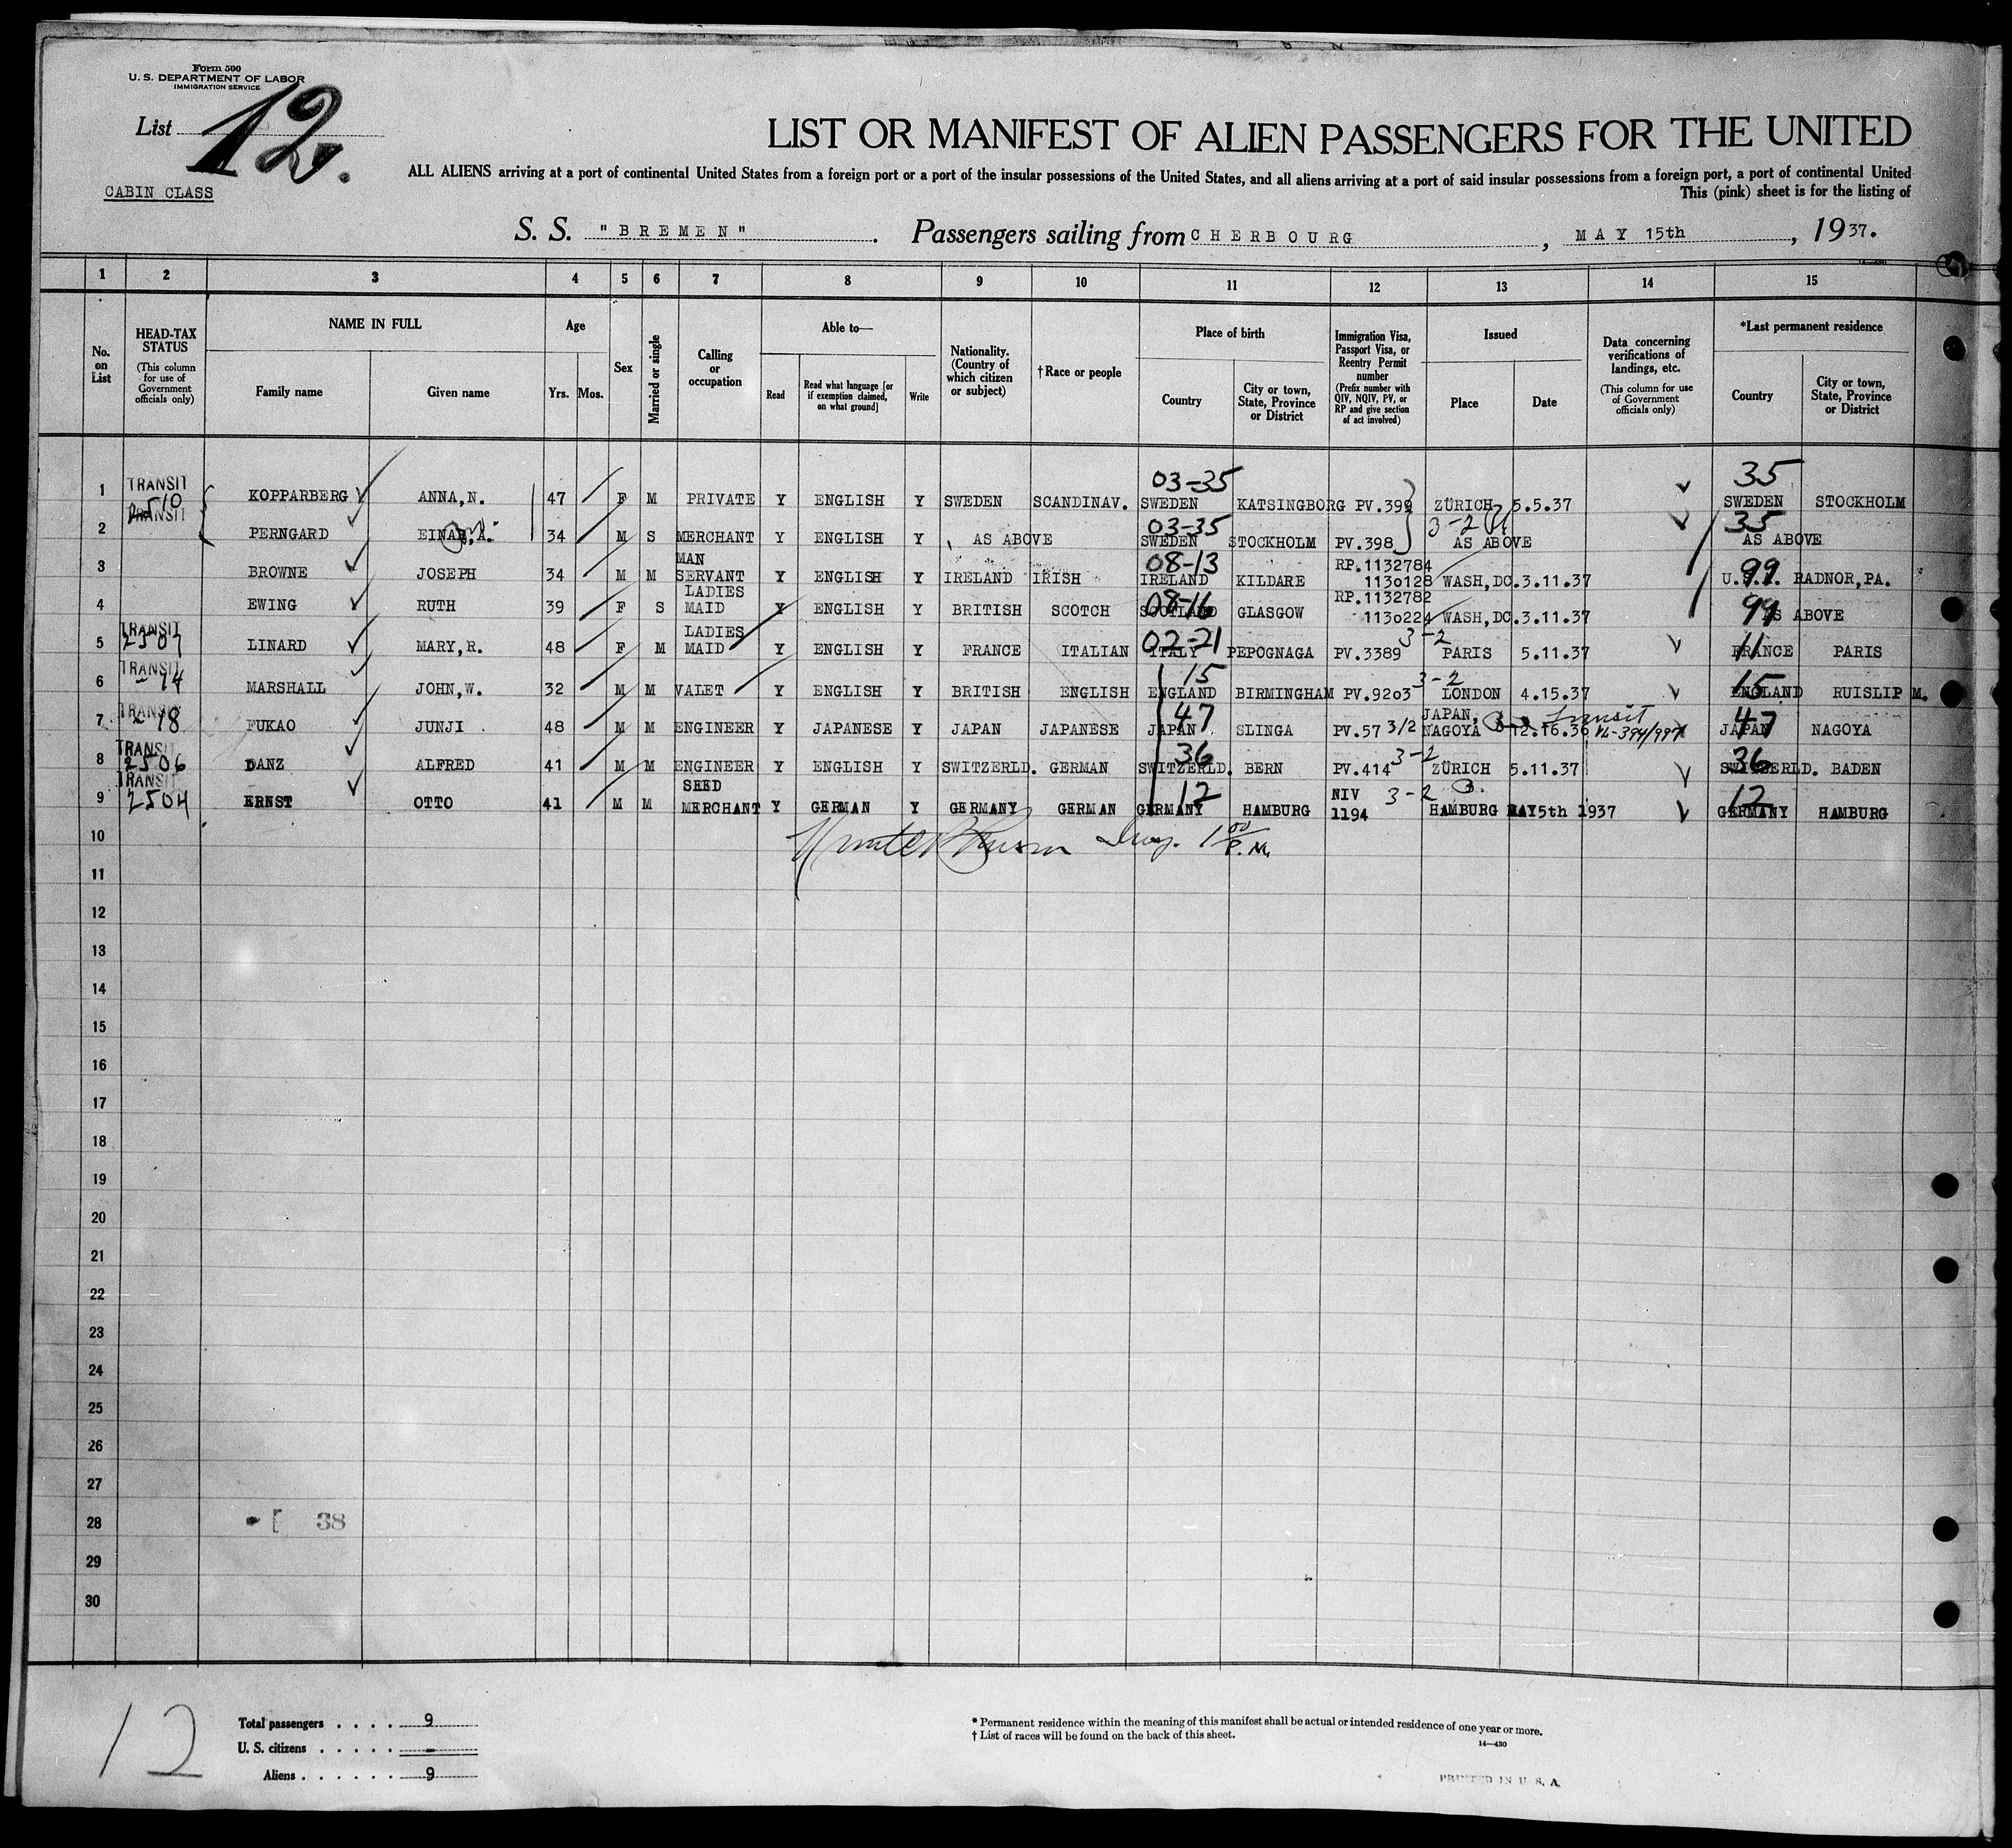 Form 500
U. S. DEPARTMENT OF LABOR
IMMIGRATION SERVICE
List 12.
CABIN CLASS
LIST OR MANIFEST OF ALIEN PASSENGERS FOR THE UNITED
ALL ALIENS arriving at a port of continental United States from a foreign port or a port of the insular possessions of the United States, and all aliens arriving at a port of said insular possessions from a foreign port, a port of continental United
This (pink) sheet is for the listing of
S. S. "BREMEN". Passengers sailing from CHERBOURG, MAY 15th, 1937.
1 2 3 4 5 6 7 8 9 10 11 12 13 14 15
No. on List
HEAD-TAX STATUS (This column for use of Government officials only)
NAME IN FULL
Family name Given name
Age
Yrs. Mos.
Sex
Married or single
Calling or occupation
Able to—
Read
Read what language [or if exemption claimed, on what ground]
Write
Nationality. (Country of which citizen or subject)
†Race or people
Place of birth
Country
City or town, State, Province or District
Immigration Visa, Passport Visa, or Reentry Permit number (Prefix number with QIV, NQIV, PV, or RP and give section of act involved)
Issued
Place Date
Data concerning verifications of landings, etc. (This column for use of Government officials only)
*Last permanent residence
Country
City or town, State, Province or District
03-35 35
1 TRANSIT 2510 KOPPARBERG ANNA,N. 47 F M PRIVATE Y ENGLISH Y SWEDEN SCANDINAV. SWEDEN KATSINGBORG PV.399 ZÜRICH 5.5.37 SWEDEN STOCKHOLM
TRANSIT 03-35 3-2 35
2 PERNGARD EINAR,A. 34 M S MERCHANT Y ENGLISH Y AS ABOVE SWEDEN STOCKHOLM PV.398 AS ABOVE AS ABOVE
08-13 99
3 BROWNE JOSEPH 34 M M MAN SERVANT Y ENGLISH Y IRELAND IRISH IRELAND KILDARE RP.1132784 1130128 WASH,DC.3.11.37 RADNOR,PA.
08-16 99
4 EWING RUTH 39 F S LADIES MAID Y ENGLISH Y BRITISH SCOTCH SCOTLAND GLASGOW RP.1132782 1130224 WASH,DC.3.11.37 AS ABOVE
02-21 3-2 11
5 TRANSIT 2507 LINARD MARY,R. 48 F M LADIES MAID Y ENGLISH Y FRANCE ITALIAN ITALY PEPOGNAGA PV.3389 PARIS 5.11.37 FRANCE PARIS
15 3-2 15
6 TRANSIT 14 MARSHALL JOHN,W. 32 M M VALET Y ENGLISH Y BRITISH ENGLISH ENGLAND BIRMINGHAM PV.9203 LONDON 4.15.37 ENGLAND RUISLIP M.
47 transit 47
7 TRANSIT 18 FUKAO JUNJI 48 M M ENGINEER Y JAPANESE Y JAPAN JAPANESE JAPAN SLINGA PV.57 3/2 JAPAN, NAGOYA 12.16.36 JAPAN NAGOYA
36 3-2 36
8 TRANSIT 2506 DANZ ALFRED 41 M M ENGINEER Y ENGLISH Y SWITZERLD. GERMAN SWITZERLD. BERN PV.414 ZÜRICH 5.11.37 SWITZERLD. BADEN
12 3-2 12
9 TRANSIT 2504 ERNST OTTO 41 M M SEED MERCHANT Y GERMAN Y GERMANY GERMAN GERMANY HAMBURG NIV 1194 HAMBURG MAY5th 1937 GERMANY HAMBURG
10
11
12
13
14
15
16
17
18
19
20
21
22
23
24
25
26
27
28 38
29
30
12
Total passengers . . . . 9
U. S. citizens . . . . . -
Aliens . . . . . . 9
* Permanent residence within the meaning of this manifest shall be actual or intended residence of one year or more.
† List of races will be found on the back of this sheet.
14—430
PRINTED IN U. S. A.